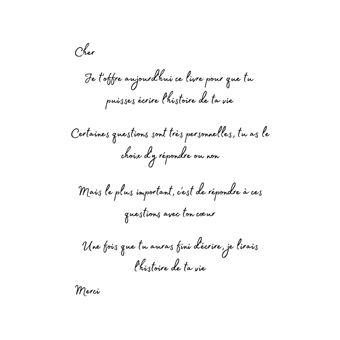 Cher
Je t'offre aujourd'hui ce livre pour que tu
puisses écrire l'histoire de ta vie
Certaines questions sont très personnelles, tu as le
choix d'y répondre ou non
Mais le plus important, c'est de répondre à ces
questions avec ton cœur
Une fois que tu auras fini d'écrire, je lirais
l'histoire de ta vie
Merci